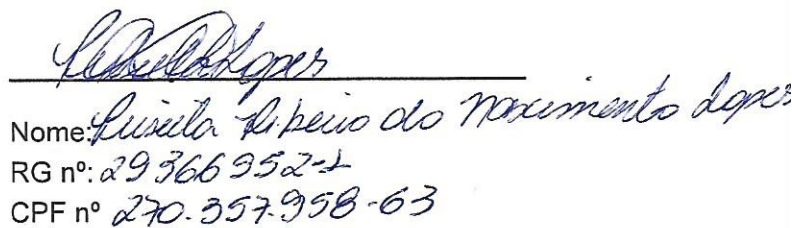 Lopes
Nome: Priscila Ribeiro do Nascimento Lopes
RG nº: 29366952-1
CPF nº 270.357.958-63